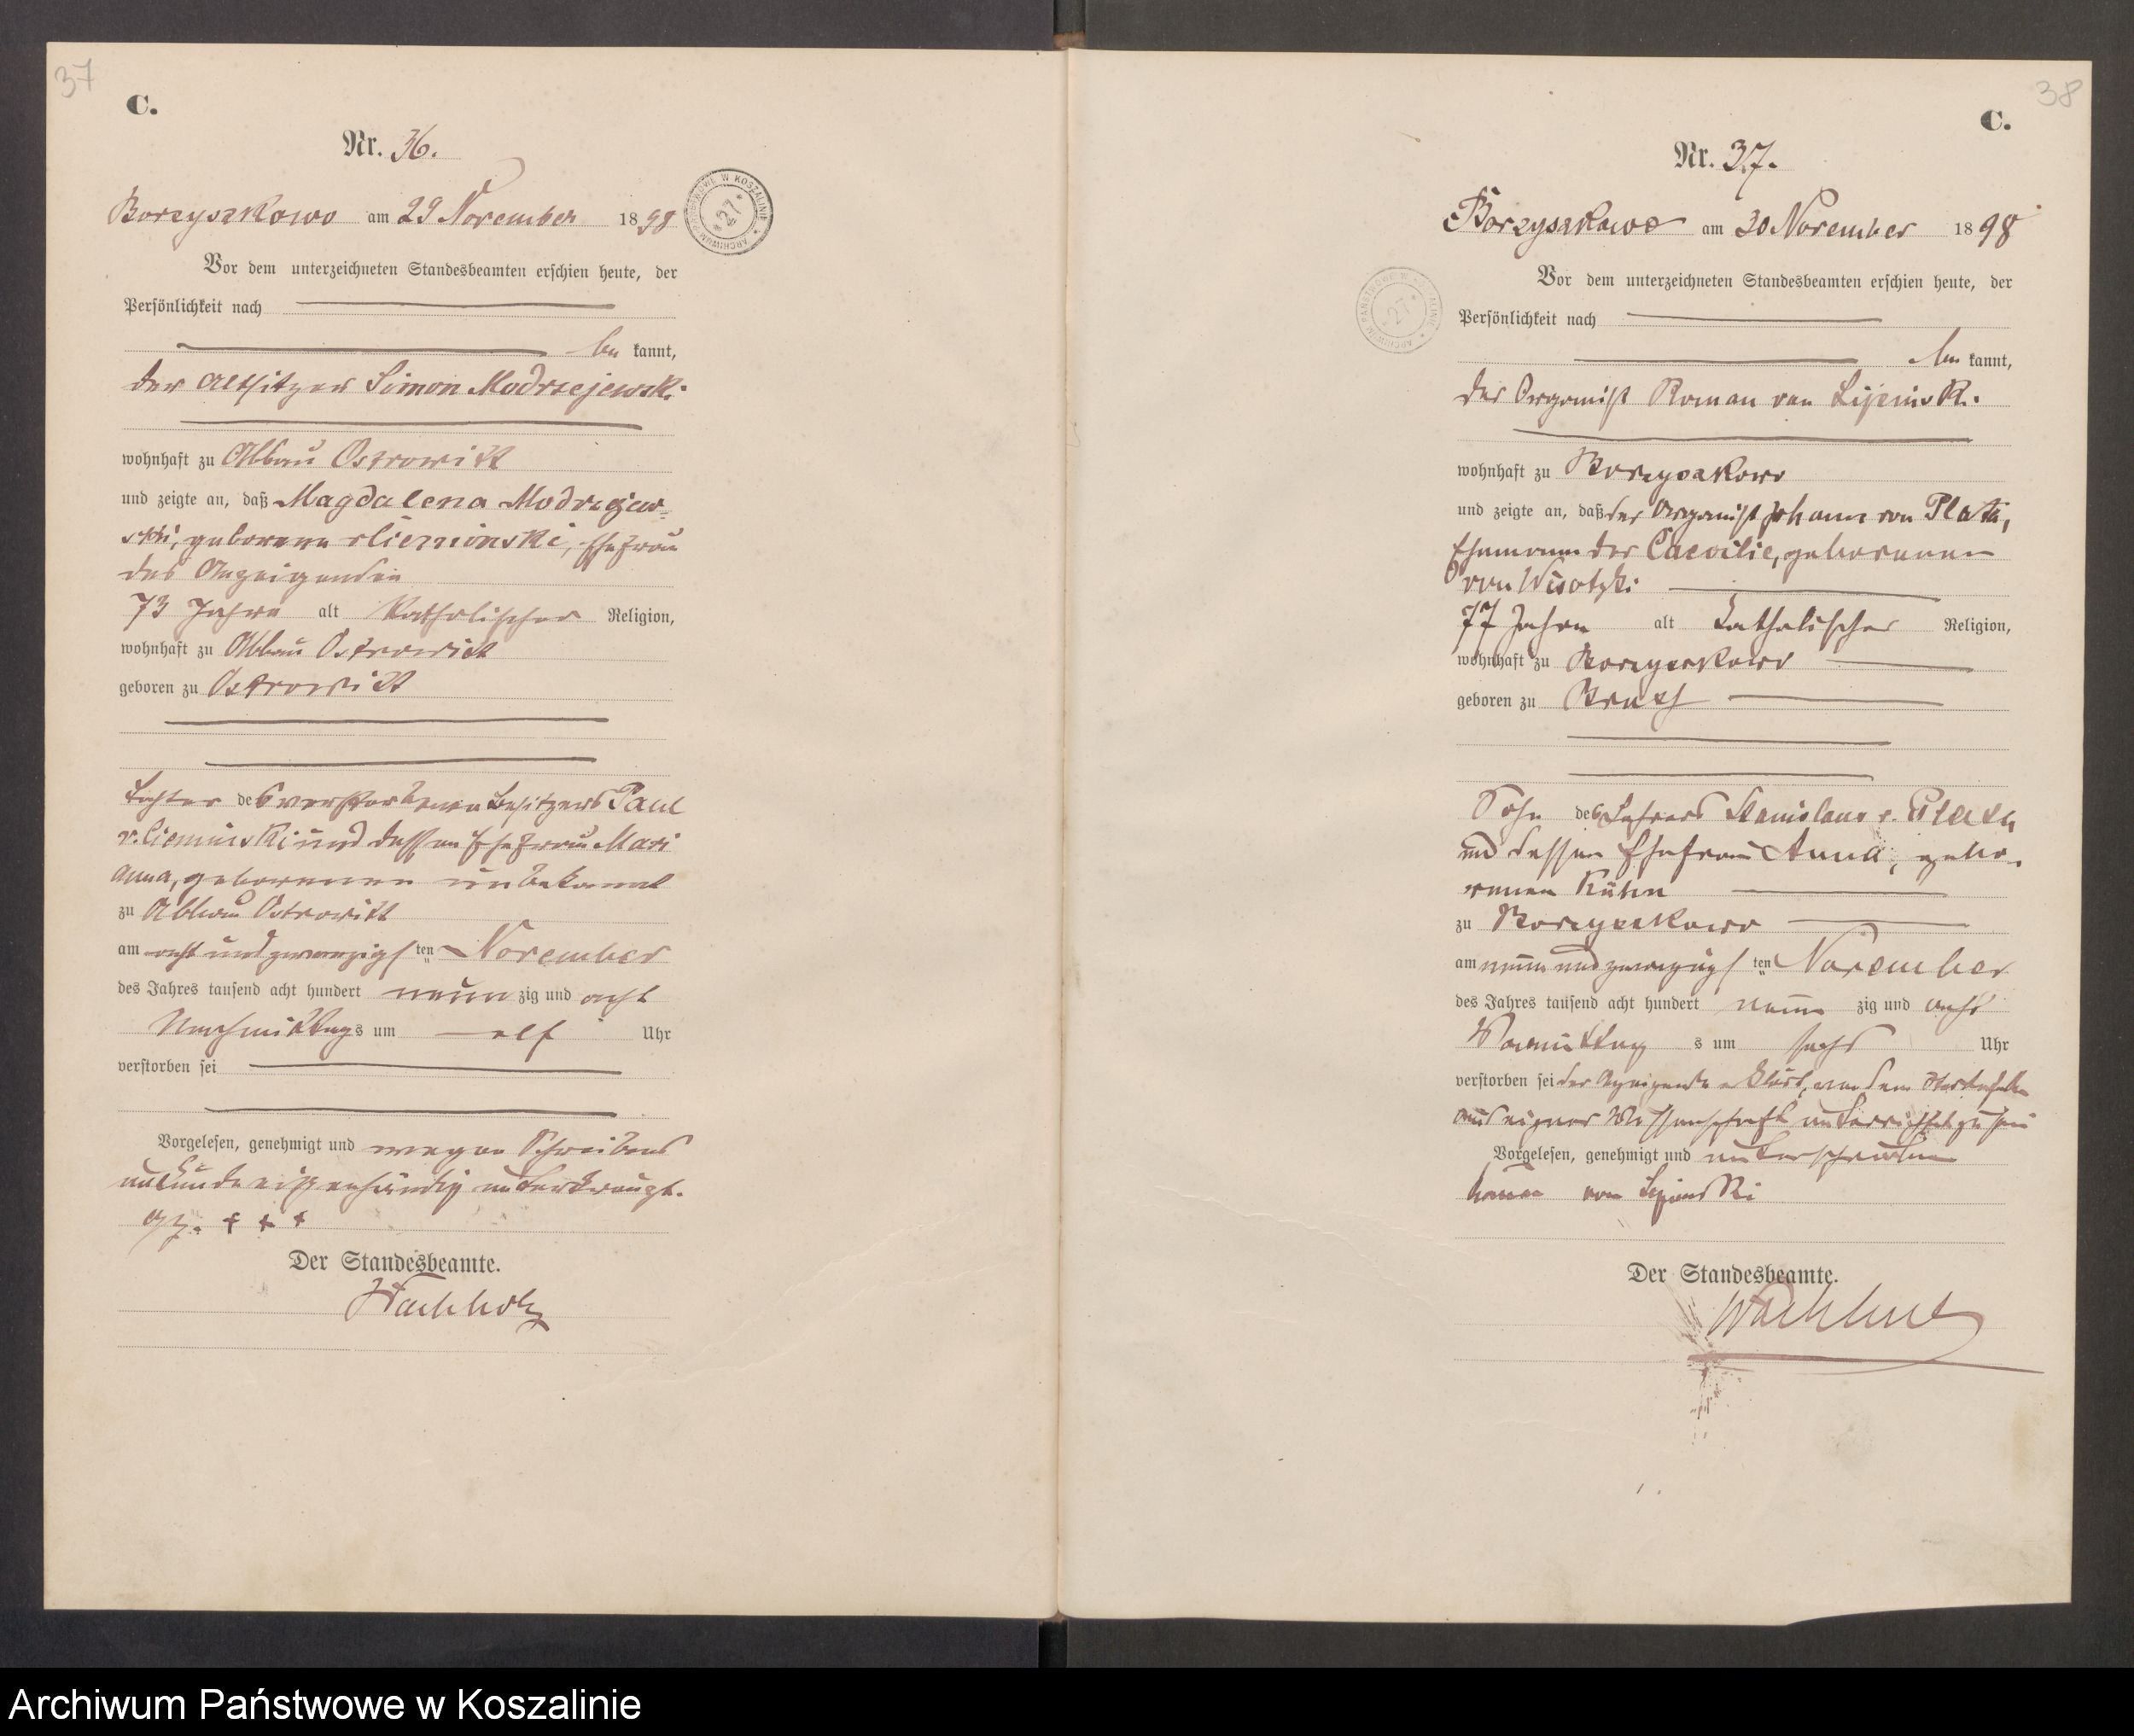 37
C.
Nr. 36.
Borzyszkowo am 29 November 1898
ARCHIWUM PAŃSTWOWE W KOSZALINIE * 27 *
Vor dem unterzeichneten Standesbeamten erschien heute, der
Persönlichkeit nach
be kannt,
der Altsitzer Simon Modrzejewski
wohnhaft zu Abbau Ostrowitt
und zeigte an, daß Magdalena Modrzejew-
ski, geborene v Ciemiński, Ehefrau
des Anzeigenden
73 Jahre alt katholischer Religion,
wohnhaft zu Abbau Ostrowitt
geboren zu Ostrowitt
Tochter des verstorbenen Besitzers Paul
v. Ciemiński und dessen Ehefrau Mari
anna, geborenen unbekannt
zu Abbau Ostrowitt
am acht und zwanzigs ten November
des Jahres tausend acht hundert neun zig und acht
Nachmittags um elf Uhr
verstorben sei
Vorgelesen, genehmigt und wegen Schreibens
unkunde eigenhändig unterkreuzt.
gz. + + +
Der Standesbeamte.
Wachholz
38
C.
Nr. 37.
Borzyszkowo am 30 November 1898
ARCHIWUM PAŃSTWOWE W KOSZALINIE * 27 *
Vor dem unterzeichneten Standesbeamten erschien heute, der
Persönlichkeit nach
be kannt,
der Organist Roman von Lipinski
wohnhaft zu Borzyszkowo
und zeigte an, daß der Organist Johann von Plata,
Ehemann der Caecilie, geborenen
von Wisotzki
77 Jahre alt katholischer Religion,
wohnhaft zu Borzyszkowo
geboren zu Bruß
Sohn des Lehrers Stanislaus v. Plata
und dessen Ehefrau Anna, gebo-
renen Kühn
zu Borzyszkowo
am neun und zwanzigs ten November
des Jahres tausend acht hundert neun zig und acht
Vormittag s um sechs Uhr
verstorben sei der Anzeigende erklärt, von dem Sterbefalle
aus eigner Wissenschaft unterrichtet zu sein
Vorgelesen, genehmigt und unterschrieben
Roman von Lipinski
Der Standesbeamte.
Wachholz
Archiwum Państwowe w Koszalinie